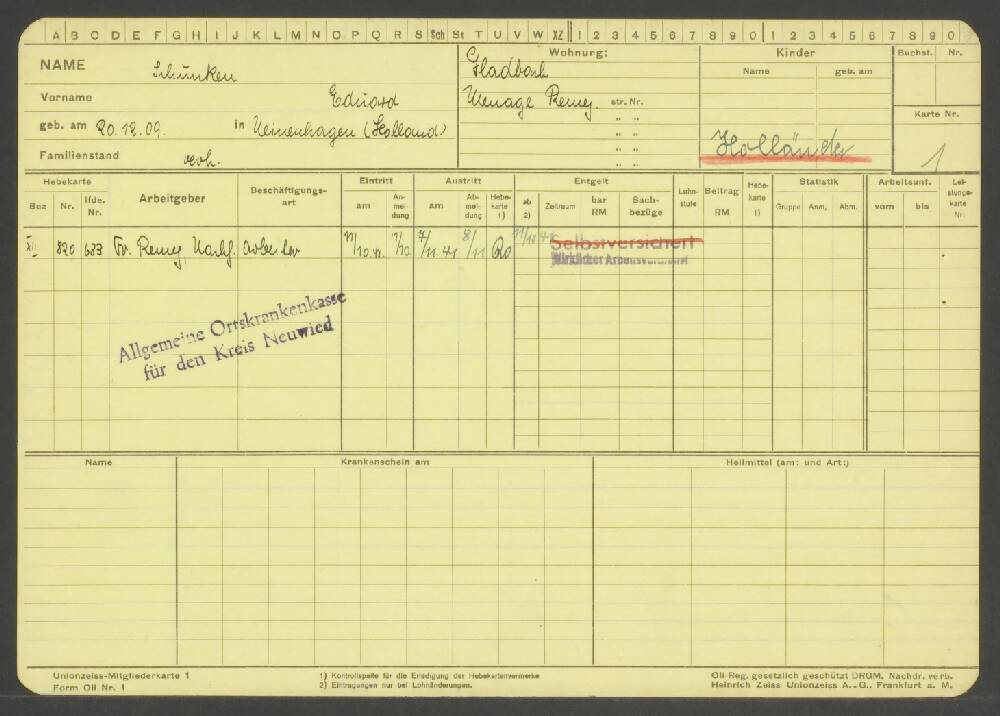 A B C D E F G H I J K L M N O P Q R S Sch St T U V W XZ 1 2 3 4 5 6 7 8 9 0 1 2 3 4 5 6 7 8 9 0
NAME Schünken
Vorname Eduard
geb. am 20.12.09. in (Holland)
Familienstand verh.
Wohnung:
Gladbach
Menage Remy. str. Nr.
" "
" "
" "
" "
Kinder
Name geb. am
Holländer
Buchst. Nr.
Karte Nr.
1
Hebekarte Arbeitgeber Beschäftigungs-art Eintritt Austritt Entgelt Lohn-stufe Beitrag RM Hebe-karte 1) Statistik Arbeitsunf. Lei-stungs-karte Nr.
Bez Nr. lfde. Nr. am An-mel-dung am Ab-mel-dung Hebe-karte 1) ab 2) Zeitraum bar RM Sach-bezüge Gruppe Anm. Abm. vom bis
XII 820 633 Fa. Remy, Nachf. Arbeiter /10.41. /10. 7/11.41 8/11 Ro 11/11 41
Selbstversichert
Allgemeine Ortskrankenkasse
für den Kreis Neuwied
Name Krankenschein am Heilmittel (am: und Art:)
Unionzeiss-Mitgliederkarte 1
Form Oll Nr. 1
1) Kontrollspalte für die Erledigung der Hebekartenvermerke
2) Eintragungen nur bei Lohnänderungen.
Oll-Reg. gesetzlich geschützt DRGM. Nachdr. verb.
Heinrich Zeiss Unionzeiss A.-G., Frankfurt a. M.